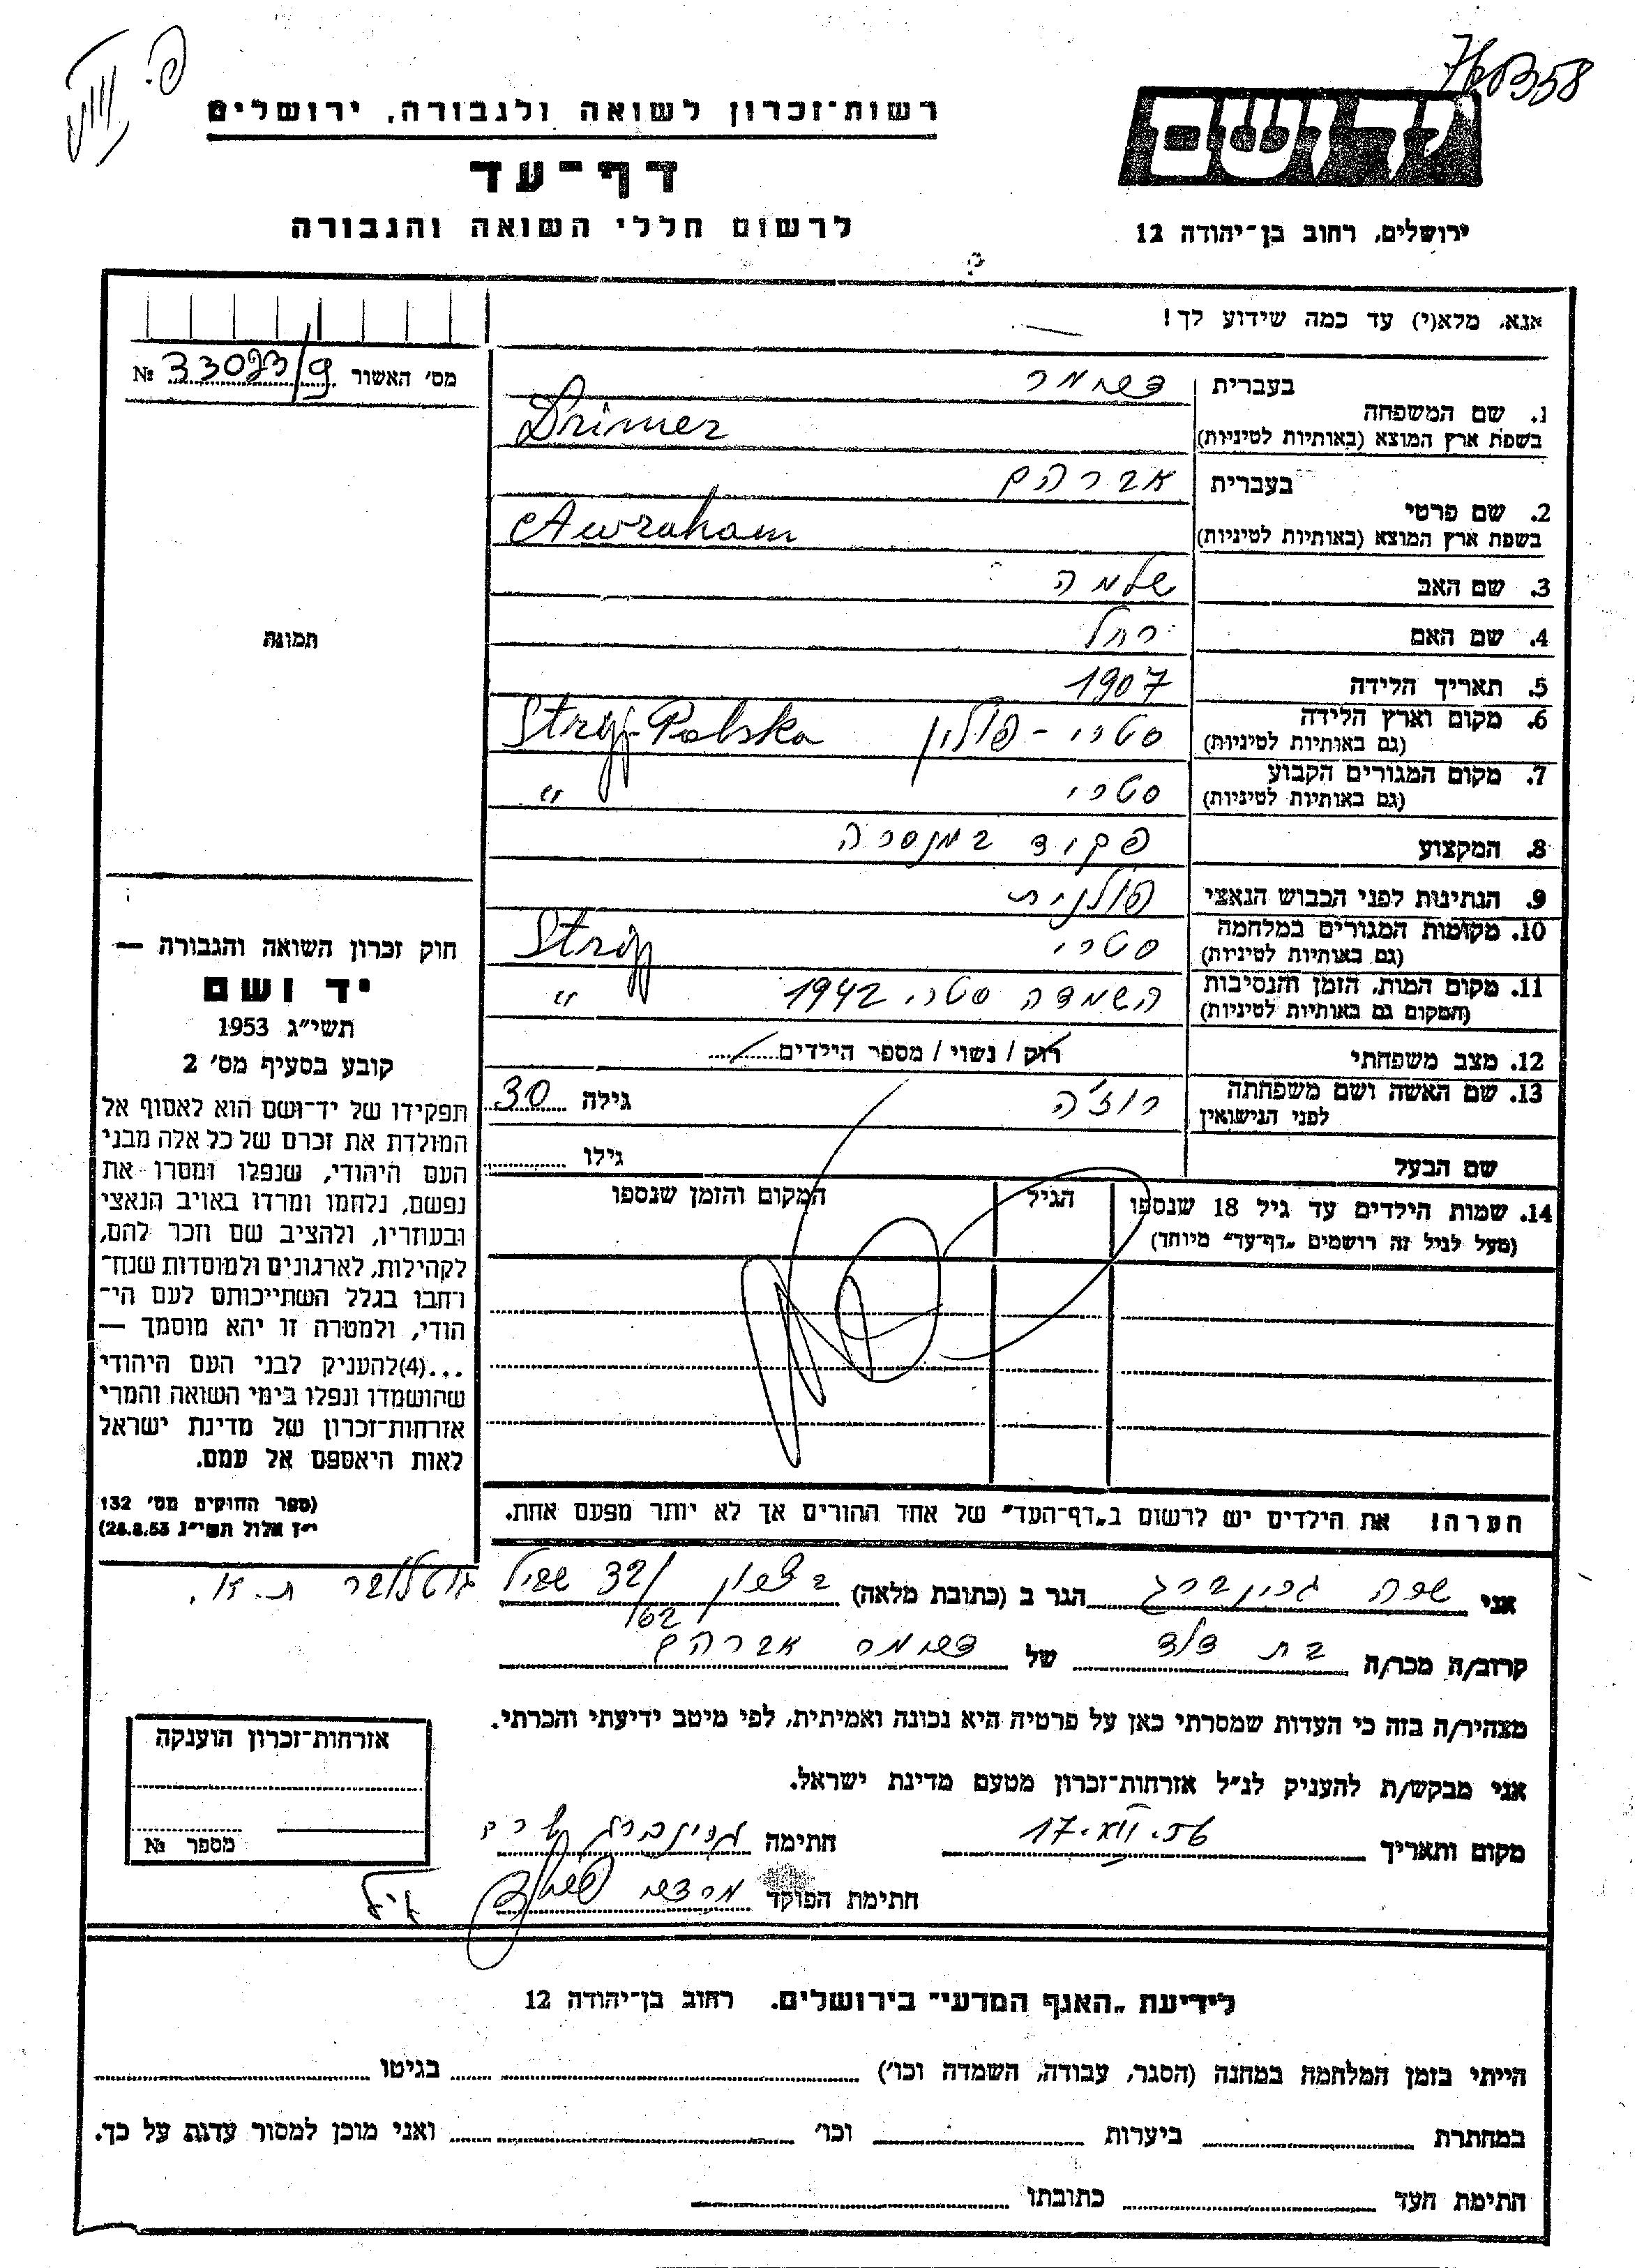 רשות־זכרון לשואה ולגבורה, ירושלים
דף־עד
לרשום חללי השואה והגבורה
יד ושם
ירושלים, רחוב בן־יהודה 12
אנא, מלא(י) עד כמה שידוע לך!
מס׳ האשור № 33093/9
תמונה
1. שם המשפחה בעברית דרימר
בשפת ארץ המוצא (באותיות לטיניות) Drimer
2. שם פרטי בעברית אברהם
בשפת ארץ המוצא (באותיות לטיניות) Awraham
3. שם האב שלמה
4. שם האם רחל
5. תאריך הלידה 1907
6. מקום וארץ הלידה סטרי - פולין Stryj-Polska
(גם באותיות לטיניות)
7. מקום המגורים הקבוע סטרי "
(גם באותיות לטיניות)
8. המקצוע פקיד במנסרה
9. הנתינות לפני הכבוש הנאצי פולנית
10. מקומות המגורים במלחמה סטרי Stryj
(גם באותיות לטיניות)
11. מקום המות, הזמן והנסיבות השמדה סטרי 1942 "
(המקום גם באותיות לטיניות)
12. מצב משפחתי רוק / נשוי / מספר הילדים
13. שם האשה ושם משפחתה רוז׳ה גילה 30
לפני הנישואין
שם הבעל גילו
14. שמות הילדים עד גיל 18 שנספו הגיל המקום והזמן שנספו
(מעל לגיל זה רושמים „דף־עד" מיוחד)
חוק זכרון השואה והגבורה —
יד ושם
תשי״ג 1953
קובע בסעיף מס׳ 2
תפקידו של יד־ושם הוא לאסוף אל
המולדת את זכרם של כל אלה מבני
העם היהודי, שנפלו ומסרו את
נפשם, נלחמו ומרדו באויב הנאצי
ובעוזריו, ולהציב שם וזכר להם,
לקהילות, לארגונים ולמוסדות שנח־
רחבו בגלל השתייכותם לעם הי־
הודי, ולמטרה זו יהא מוסמך —
...(4)להעניק לבני העם היהודי
שהושמדו ונפלו בימי השואה והמרי
אזרחות־זכרון של מדינת ישראל
לאות היאספם אל עמם.
(ספר החוקים מס׳ 132
י״ז אלול תשי״ג 28.8.53)
הערה! את הילדים יש לרשום ב„דף־העד" של אחד ההורים אך לא יותר מפעם אחת.
אני שרה גרינברג הגר ב (כתובת מלאה) 32/62
קרוב/ה מכר/ה בת דוד של דרימר אברהם
מצהיר/ה בזה כי העדות שמסרתי כאן על פרטיה היא נכונה ואמיתית, לפי מיטב ידיעתי והכרתי.
אני מבקש/ת להעניק לנ״ל אזרחות־זכרון מטעם מדינת ישראל.
מקום ותאריך חתימה גרינברג שרה
חתימת הפוקד
אזרחות־זכרון הוענקה
מספר №
לידיעת „האגף המדעי" בירושלים. רחוב בן־יהודה 12
הייתי בזמן המלחמה במחנה (הסגר, עבודה, השמדה וכו׳) בגיטו
במחתרת ביערות וכו׳ ואני מוכן למסור עדות על כך.
חתימת העד כתובתו